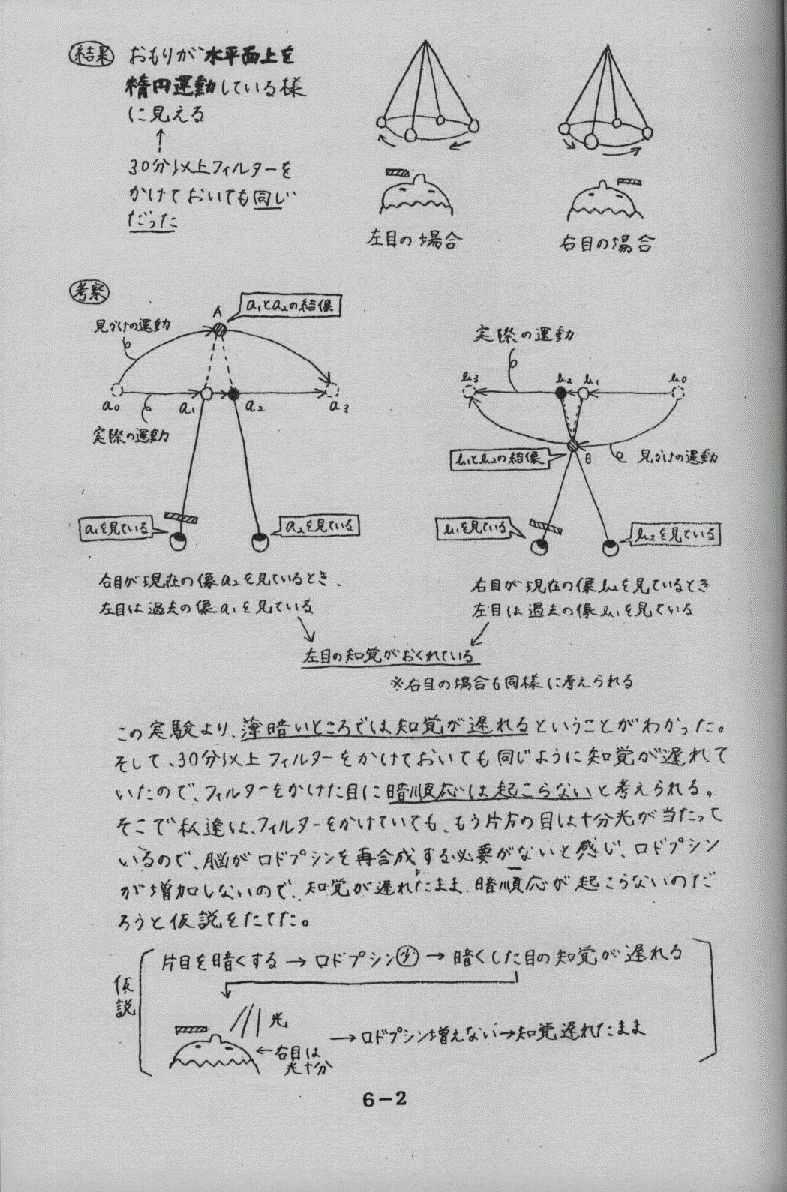 結果 おもりが水平面上を
楕円運動している様
に見える
↑
30分以上フィルターを
かけておいても同じ
だった
左目の場合
右目の場合
考察
A
a₁とa₂の結像
見かけの運動
a₀ a₁ a₂ a₃
実際の運動
a₁を見ている
a₂を見ている
右目が現在の像a₂を見ているとき、
左目は過去の像a₁を見ている
実際の運動
b₃ b₂ b₁ b₀
b₁とb₂の結像
B
見かけの運動
b₁を見ている
b₂を見ている
右目が現在の像b₂を見ているとき
左目は過去の像b₁を見ている
左目の知覚がおくれている
※右目の場合も同様に考えられる
この実験より、薄暗いところでは知覚が遅れるということがわかった。
そして、30分以上フィルターをかけておいても同じように知覚が遅れて
いたので、フィルターをかけた目に暗順応は起こらないと考えられる。
そこで私達は、フィルターをかけていても、もう片方の目は十分光が当たって
いるので、脳がロドプシンを再合成する必要がないと感じ、ロドプシン
が増加しないので、知覚が遅れたまま、暗順応が起こらないのだ
ろうと仮説をたてた。
仮説
片目を暗くする→ロドプシン少→暗くした目の知覚が遅れる
光
←右目は
光十分
→ロドプシン増えない→知覚遅れたまま
6-2